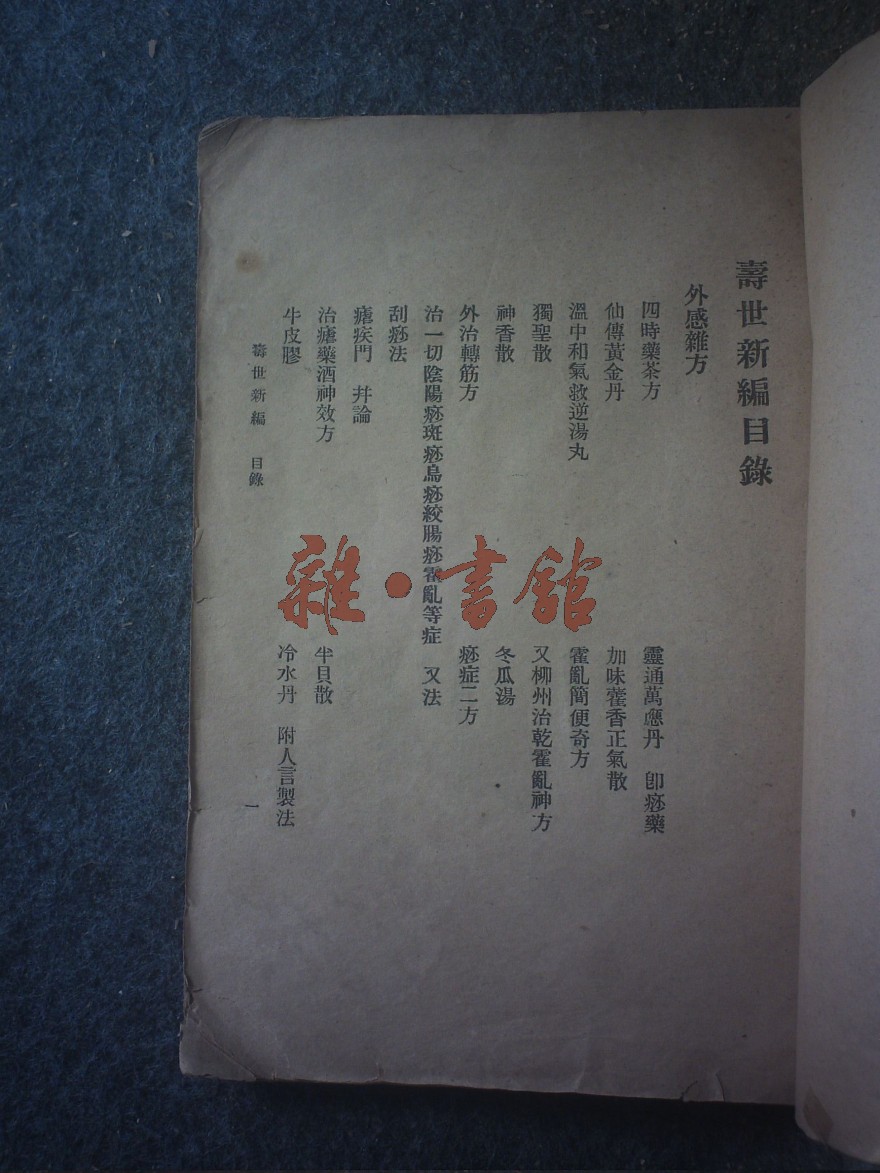 壽世新編目錄
外感雜方
四時藥茶方　靈通萬應丹　卽痧藥
仙傳黃金丹　加味藿香正氣散
溫中和氣救逆湯丸　霍亂簡便奇方
獨聖散　又柳州治乾霍亂神方
神香散　冬瓜湯
外治轉筋方　痧症二方
治一切陰陽痧斑痧烏痧絞腸痧霍亂等症　又法
刮痧法
瘧疾門　幷論
治瘧藥酒神效方　半貝散
牛皮膠　冷水丹　附人言製法
壽世新編　目錄　一
雜·書館